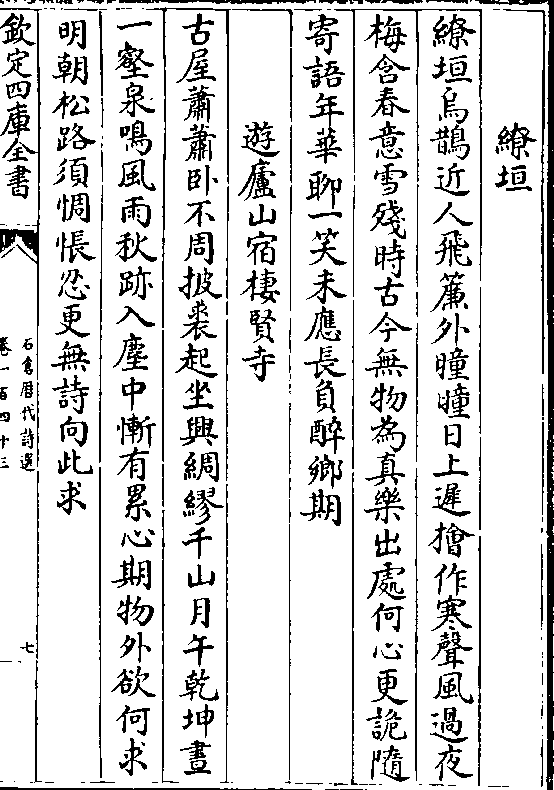 繚垣
繚垣烏鵲近人飛簾外曈曈日上遲檜作寒聲風過夜
梅含春意雪殘時古今無物為真樂出處何心更詭隨
寄語年華聊一笑未應長負醉鄉期
遊廬山宿棲賢寺
古屋蕭蕭卧不周披裘起坐興綢繆千山月午乾坤晝
一壑泉鳴風雨秋跡入塵中慚有累心期物外欲何求
明朝松路須惆悵忍更無詩向此求
欽定四庫全書
石倉歷代詩選
卷一百四十三
七